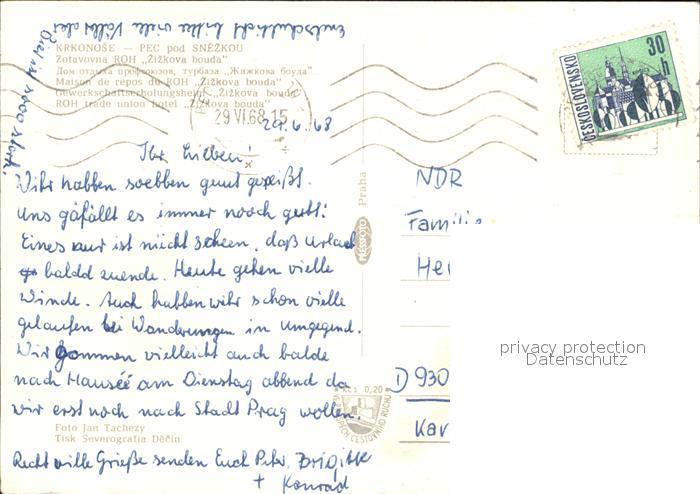 Entschuldicht bitte viele Fähler aber
KRKONOŠE — PEC pod SNĚŽKOU
Zotavovna ROH „Žižkova bouda"
Дом отдыха профсоюзов, турбаза „Жижкова боуда"
Maison de repos du ROH „Žižkova bouda"
Gewerkschaftserholungsheim „Žižkova bouda"
ROH trade union hotel „Žižkova bouda"
29 VI.68-15
29.6.68
30 h
ČESKOSLOVENSKO
Ihr Lieben!
Wihr habben soebben guut gespeißt.
Uns gäfällt es immer nooch gutt!
Eines nur ist nicht scheen, daß Urlaub
baldd zuende. Heute gehen vielle
Winde. Auch habben wihr schon vielle
gelaufen bei Wanderungen in umgegend.
Wir gommen vielleicht auch balde
nach Hauséé am Dienstag abbend da
wir erst noch nach Stadt Prag wollen.
Foto Jan Tachezy
Tisk Severografia Děčín
Recht ville Grieße senden Euch Petr, Brigitte
+ Konrad
Pressfoto Praha
Kčs 0,20
CESTOVNÍHO RUCHU
NDR
Familie
Her
D 930
Kar
privacy protection
Datenschutz